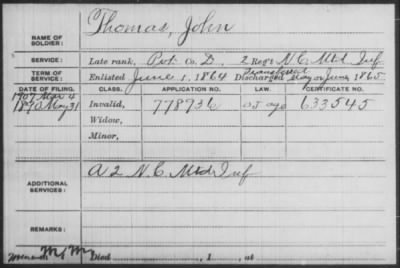 Thomas, John
NAME OF SOLDIER:
SERVICE: Late rank, Pvt. Co. D, 2 Reg't N.C. Mtd Inf
TERM OF SERVICE: Enlisted June 1, 1864 Discharged 1865
DATE OF FILING. CLASS. APPLICATION NO. LAW. CERTIFICATE NO.
1907 Mar 4
1890 May 31 Invalid, 778936 633545
Widow,
Minor,
ADDITIONAL SERVICES: A 2 N.C. Mtd Inf
REMARKS:
Died , 1 , at